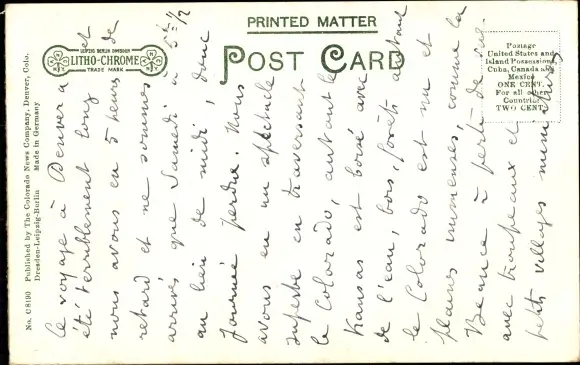 PRINTED MATTER
POST CARD
LEIPZIG BERLIN DRESDEN
LITHO-CHROME
TRADE MARK
Postage
United States and
Island Possessions
Cuba, Canada and
Mexico
ONE CENT.
For all other
Countries
TWO CENTS
No. C8190 Published by The Colorado News Company, Denver, Colo.
Dresden-Leipzig-Berlin Made in Germany
Le voyage à Denver a
été terriblement long et
nous avons eu 5 heures de
retard et ne sommes
arrivés que Samedi à 5h 1/2
au lieu de midi, donc
journée perdue. Nous
avons eu un spectacle
superbe en traversant
le Colorado, autant le
Kansas est boisé avec
de l'eau, bois, forêts autant
le Colorado est nu et
plaines immenses comme la
Beauce à perte de vue
avec troupeaux et
petits villages